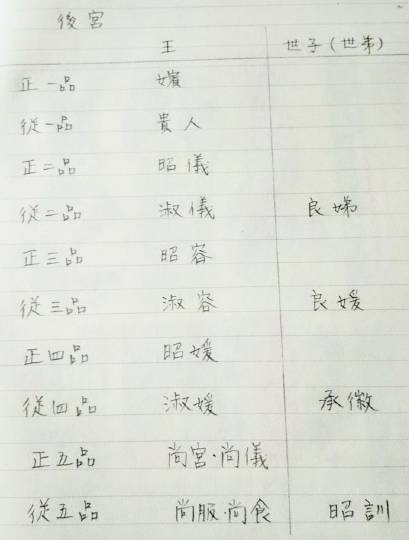 後宮
王 世子(世弟)
正一品 嬪
從一品 貴人
正二品 昭儀
從二品 淑儀 良娣
正三品 昭容
從三品 淑容 良媛
正四品 昭媛
從四品 淑媛 承徽
正五品 尚宮·尚儀
從五品 尚服·尚食 昭訓